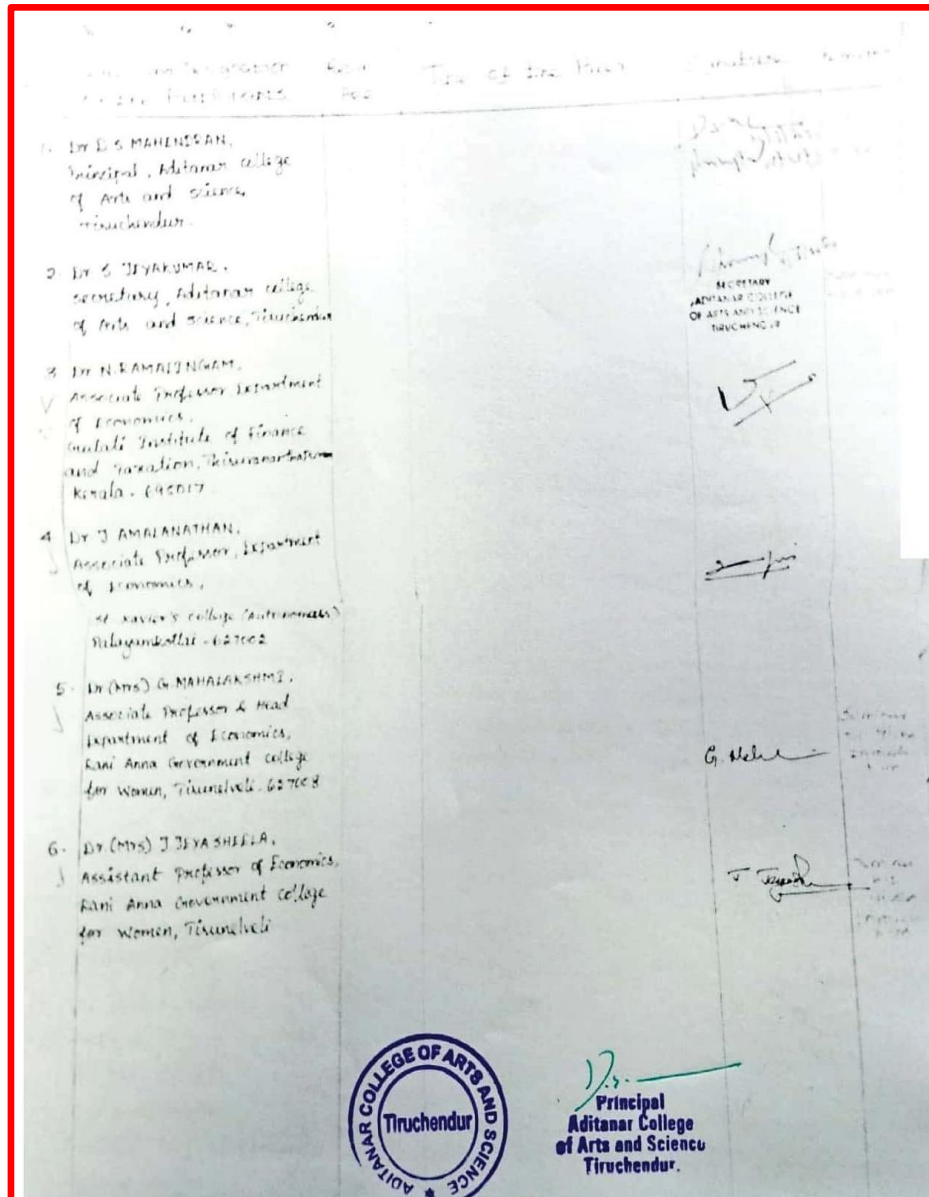 Title of the Paper
1. Dr D S MAHENDRAN,
Principal, Aditanar college
of Arts and science,
Tiruchendur.
2. Dr S JEYAKUMAR,
secretary, Aditanar college
of Arts and science, Tiruchendur
SECRETARY
ADITANAR COLLEGE
OF ARTS AND SCIENCE
TIRUCHENDUR
3 Dr N. RAMALINGAM,
Associate Professor Department
of Economics,
Gulati Institute of Finance
and Taxation,
Kerala - 695017
4 Dr J AMALANATHAN,
Associate Professor, Department
of Economics,
St. Xavier's college (Autonomous)
Palayamkottai - 627002
5. Dr (Mrs) G. MAHALAKSHMI,
Associate Professor & Head
Department of Economics,
Rani Anna Government college
for Women, Tirunelveli - 627008
6. Dr. (Mrs) J JEYA SHEELA,
Assistant Professor of Economics,
Rani Anna Government College
for Women, Tirunelveli
ADITANAR COLLEGE OF ARTS AND SCIENCE
Tiruchendur
Principal
Aditanar College
of Arts and Science
Tiruchendur.